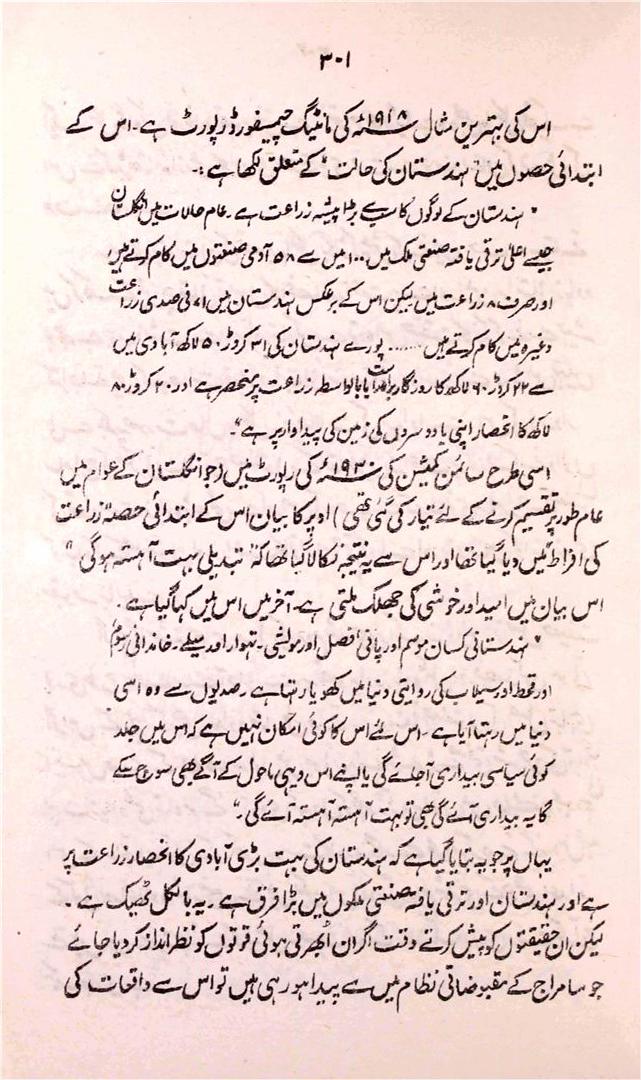 ۳۰۱
اس کی بہترین مثال ۱۹۱۸ء کی مانٹیگ چیمسفورڈ رپورٹ ہے۔ اس کے
ابتدائی حصوں میں "ہندستان کی حالت" کے متعلق لکھا ہے:۔
"ہندستان کے لوگوں کا سب سے بڑا پیشہ زراعت ہے۔ عام حالات میں انگلستان
جیسے اعلیٰ ترقی یافتہ صنعتی ملک میں ۱۰۰ میں سے ۵۸ آدمی صنعتوں میں کام کرتے ہیں
اور صرف ۸ زراعت میں لیکن اس کے برعکس ہندستان میں ۷۱ فی صدی زراعت
وغیرہ میں کام کرتے ہیں ...... پورے ہندستان کی ۳۱ کروڑ ۵۰ لاکھ آبادی میں
سے ۲۲ کروڑ ۶۰ لاکھ کا روزگار براہ راست یا بالواسطہ زراعت پر منحصر ہے اور ۲۰ کروڑ ۸۰
لاکھ کا انحصار اپنی یا دوسروں کی زمین کی پیداوار پر ہے"۔
اسی طرح سائمن کمیشن کی ۱۹۳۰ء کی رپورٹ میں (جو انگلستان کے عوام میں
عام طور پر تقسیم کرنے کے لئے تیار کی گئی تھی) اوپر کا بیان اس کے ابتدائی حصہ "زراعت
کی افراط" میں دیا گیا تھا اور اس سے یہ نتیجہ نکالا گیا تھا کہ "تبدیلی بہت آہستہ ہوگی"
اس بیان میں امید اور خوشی کی جھلک ملتی ہے۔ آخر میں اس میں کہا گیا ہے۔
"ہندستانی کسان موسم اور پانی، فصل اور مویشی۔ تہوار اور میلے۔ خاندانی رسوم
اور قحط اور سیلاب کی روایتی دنیا میں کھویا رہتا ہے۔ صدیوں سے وہ اسی
دنیا میں رہتا آیا ہے۔ اس لئے اس کا کوئی امکان نہیں ہے کہ اس میں جلد
کوئی سیاسی بیداری آجائے گی یا اپنے اس دیہی ماحول کے آگے بھی سوچ سکے
گا یہ بیداری آئے گی بھی تو بہت آہستہ آہستہ آئے گی۔"
یہاں پر جو یہ بتایا گیا ہے کہ ہندستان کی بہت بڑی آبادی کا انحصار زراعت پر
ہے اور ہندستان اور ترقی یافتہ صنعتی ملکوں میں بڑا فرق ہے۔ یہ بالکل ٹھیک ہے۔
لیکن ان حقیقتوں کو پیش کرتے وقت اگر ان اُبھرتی ہوئی قوتوں کو نظر انداز کردیا جائے
جو سامراج کے مقبوضاتی نظام میں سے پیدا ہو رہی ہیں تو اس سے واقعات کی